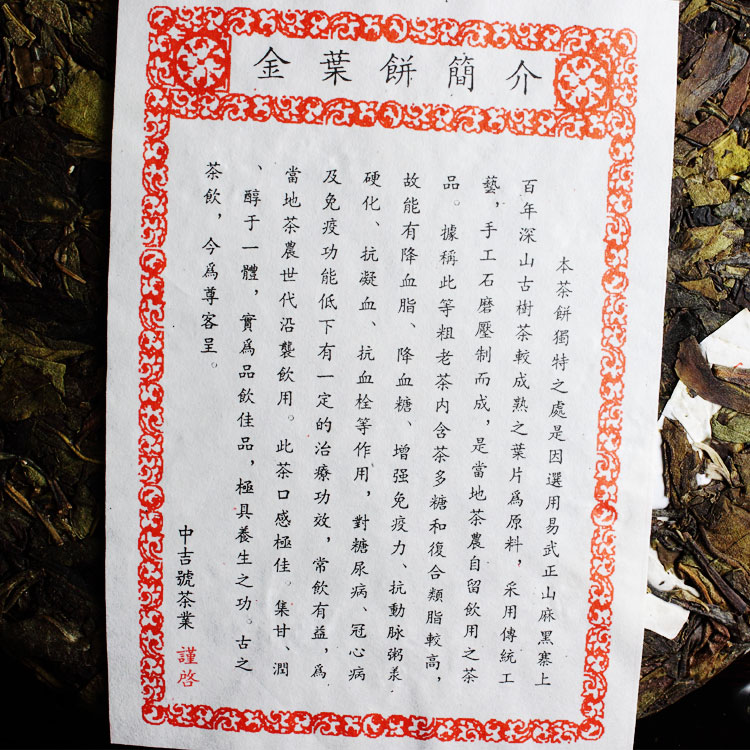 金葉餅簡介
本茶餅獨特之處是因選用易武正山麻黑寨上
百年深山古樹茶較成熟之葉片爲原料，采用傳統工
藝，手工石磨壓制而成，是當地茶農自留飲用之茶
品。據稱此等粗老茶内含茶多糖和復合類脂較高，
故能有降血脂、降血糖、增强免疫力、抗動脉粥美
硬化、抗凝血、抗血栓等作用，對糖尿病、冠心病
及免疫功能低下有一定的治療功效，常飲有益，爲
當地茶農世代沿襲飲用。此茶口感極佳。集甘、潤
、醇于一體，實爲品飲佳品，極具養生之功。古之
茶飲，今爲尊客呈。
中吉號茶業 謹啓